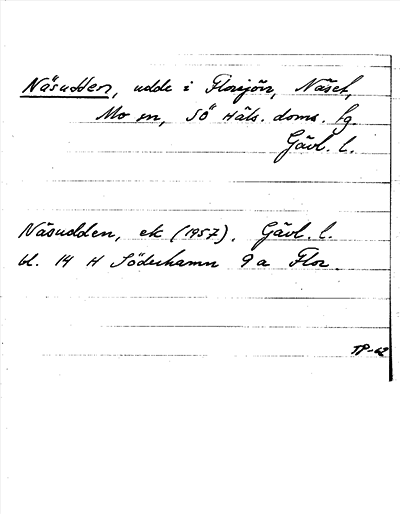 Näsudden, udde i Florsjön, Näset,
Mo sn, SÖ Häls. doms. fg.
Gävl. l.
Näsudden, ek (1957). Gävl. l.
bl. 14 H Söderhamn 9 a Flor.
TP-62